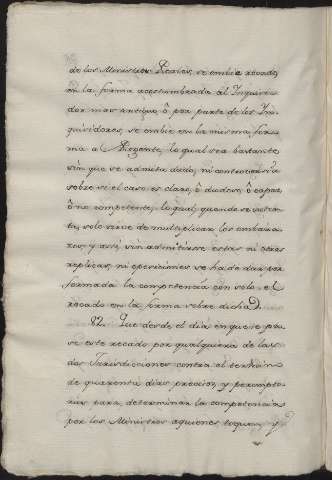 de los Ministros Reales, se embie recado
en la forma acostumbrada al Inquisi
dor mas antiguo, ô por parte de los In
quisidores, se embie en la misma for
ma al Regente, lo qual sea bastante
sin que se admita duda, ni controversia
sobre si el caso es claro, ô dudoso, ô capaz
ô no competente, lo qual quando se inten
ta, solo sirve de multiplicar los embara
zos, y assi sin admitirse estas ni otras
replicas, ni oposiciones se ha de dar por
formada la competencia con solo el
recado en la forma sobre dicha.
82. Que desde el dia en que se pasa
se este recado por qualquiera de las
dos Jurisdiciones corra el termino
de quarenta dias precisos, y perempto
rios para determinar la competencia
por los Ministros aquienes toquen, y